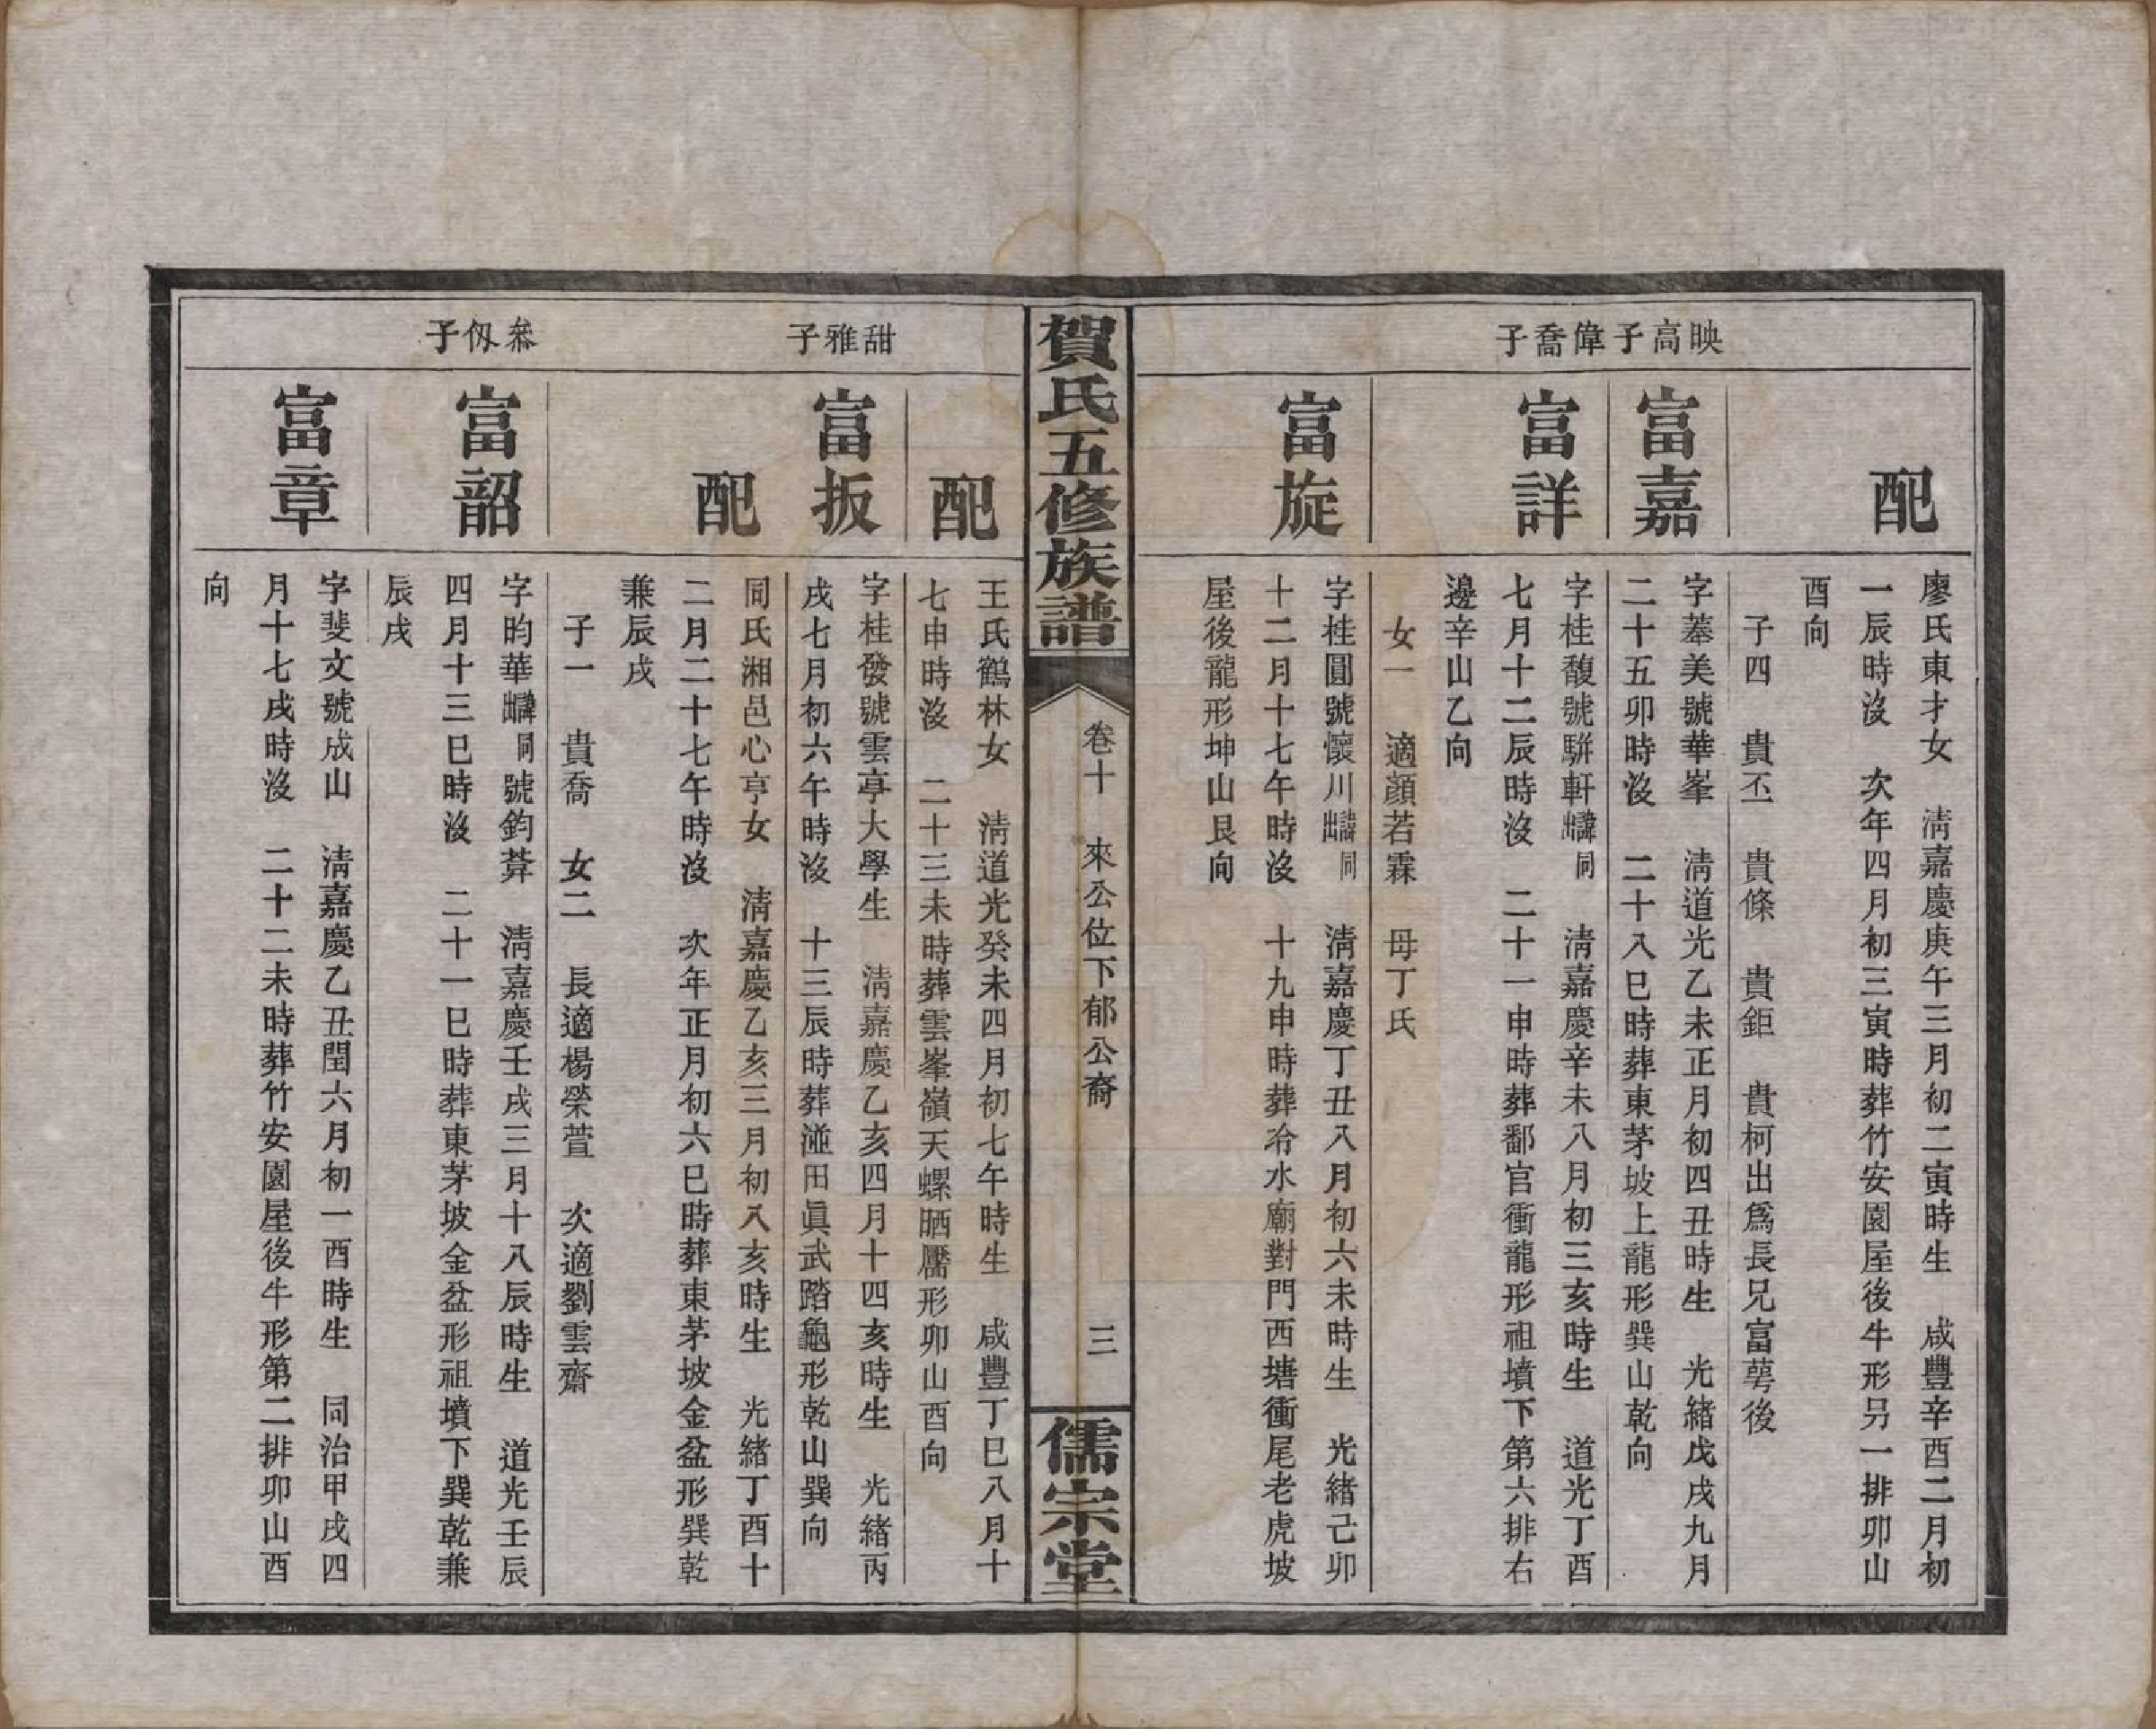 映高子偉喬子
配
廖氏東才女　清嘉慶庚午三月初二寅時生　咸豐辛酉二月初
一辰時沒　次年四月初三寅時葬竹安園屋後牛形另一排卯山
酉向
子四　貴丕　貴條　貴鉅　貴柯出爲長兄富萼後
富嘉
字蓁美號華峯　清道光乙未正月初四丑時生　光緒戊戌九月
二十五卯時沒　二十八巳時葬東茅坡上龍形巽山乾向
富詳
字桂馥號駢軒出譜同　清嘉慶辛未八月初三亥時生　道光丁酉
七月十二辰時沒　二十一申時葬鄱官衝龍形祖墳下第六排右
邊辛山乙向
女一　適顏若霖　母丁氏
富旋
字桂圓號懷川出譜同　清嘉慶丁丑八月初六未時生　光緒己卯
十二月十七午時沒　十九申時葬冷水廟對門西塘衝尾老虎坡
屋後龍形坤山艮向
賀氏五修族譜
卷十　來公位下郁公裔
三
儒宗堂
甜雅子
配
王氏鶴林女　清道光癸未四月初七午時生　咸豐丁巳八月十
七申時沒　二十三未時葬雲峯嶺天螺晒靨形卯山酉向
富扳
字桂發號雲亭大學生　清嘉慶乙亥四月十四亥時生　光緒丙
戌七月初六午時沒　十三辰時葬湴田眞武踏龜形乾山巽向
配
同氏湘邑心亨女　清嘉慶乙亥三月初八亥時生　光緒丁酉十
二月二十七午時沒　次年正月初六巳時葬東茅坡金盆形巽乾
兼辰戌
子一　貴喬　女二　長適楊榮萱　次適劉雲齋
叅仭子
富韶
字昀華出譜同號鈞莽　清嘉慶壬戌三月十八辰時生　道光壬辰
四月十三巳時沒　二十一巳時葬東茅坡金盆形祖墳下巽乾兼
辰戌
富章
字斐文號成山　清嘉慶乙丑閏六月初一酉時生　同治甲戌四
月十七戌時沒　二十二未時葬竹安園屋後牛形第二排卯山酉
向